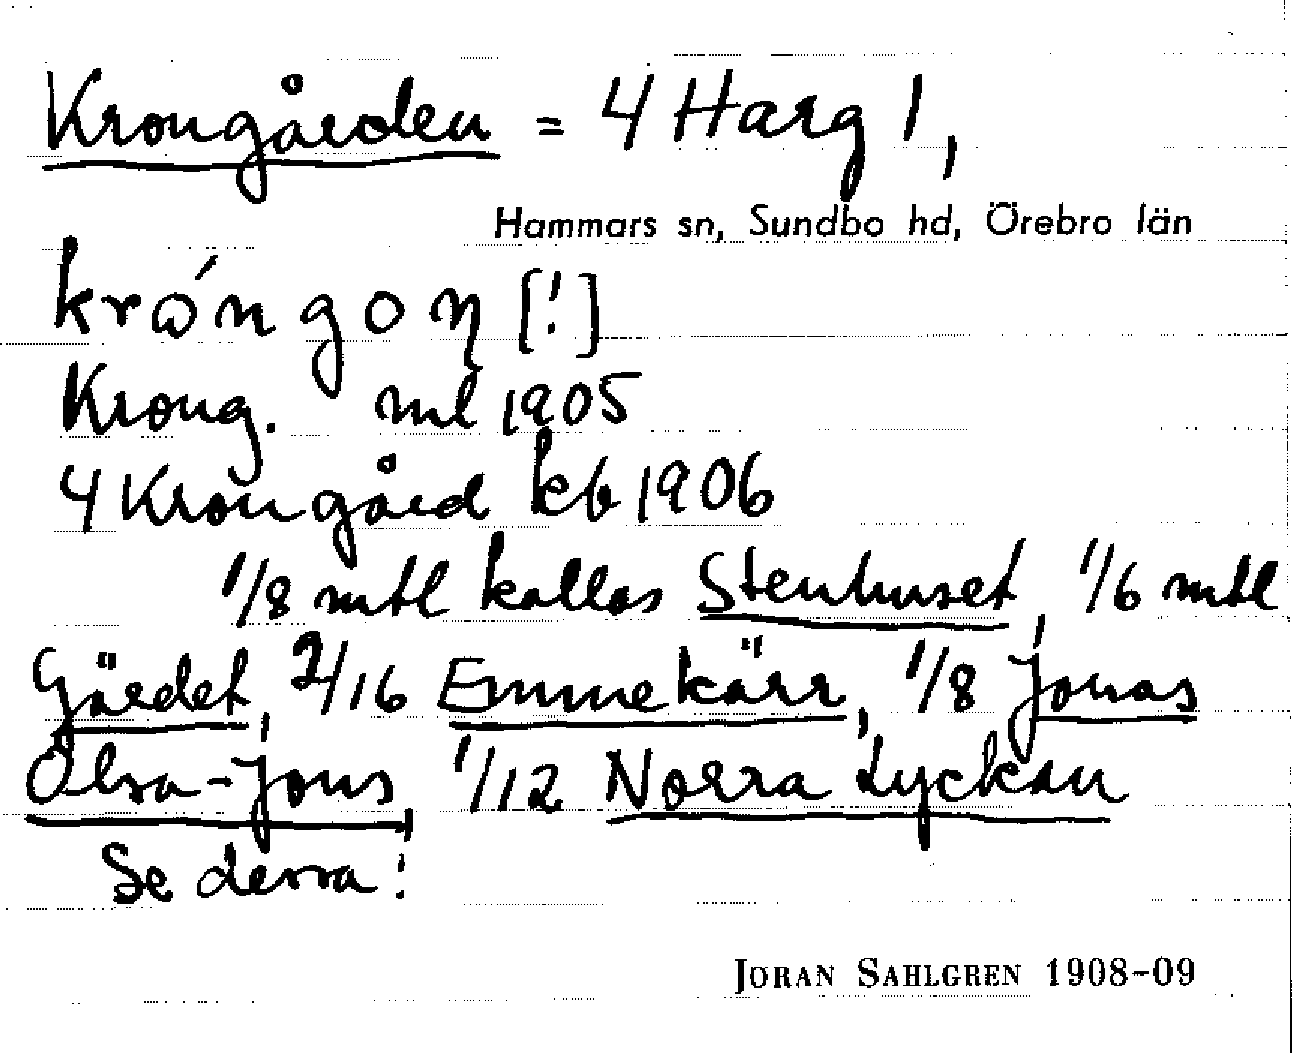 Krongården = 4 Harg 1,
Hammars sn, Sundbo hd, Örebro län
króngon [!]
Krong. ml 1905
4 Krongård kb 1906
1/8 mtl kallas Stenhuset, 1/6 mtl
Gärdet, 2/16 Emmekärr, 1/8 Jonas
Olsa-Jons, 1/12 Norra Lyckan
Se dessa!
JORAN SAHLGREN 1908-09